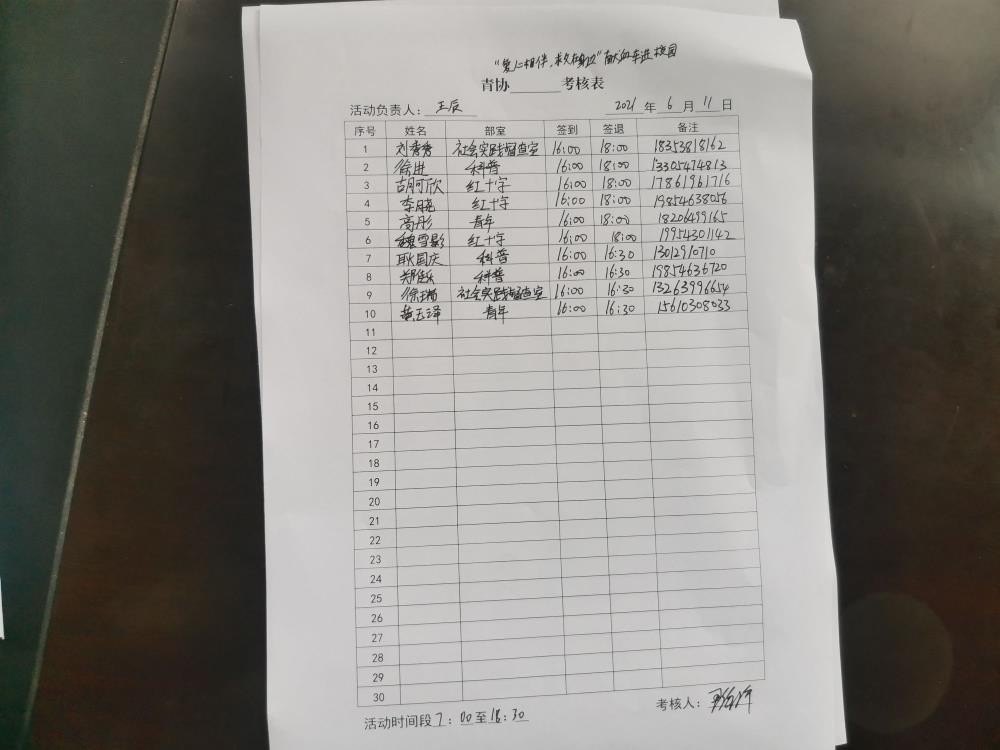 "爱心相伴,救在身边"献血车进校园
青协______考核表
活动负责人: 王辰 2021 年 6 月 11 日
序号 姓名 部室 签到 签退 备注
1 刘秀秀 社会实践督查室 16:00 18:00 18353818162
2 徐进 科普 16:00 18:00 13305474813
3 胡可欣 红十字 16:00 18:00 17861961716
4 李晓 红十字 16:00 18:00 19854638056
5 高彤 青年 16:00 18:00 18206499165
6 魏雪影 红十字 16:00 18:00 19954301142
7 耿国庆 科普 16:00 16:30 13012910710
8 郑 科普 16:00 16:30 19854636720
9 徐瑞 社会实践督查室 16:00 16:30 13263996654
10 黄玉泽 青年 16:00 16:30 15610308033
11
12
13
14
15
16
17
18
19
20
21
22
23
24
25
26
27
28
29
30
活动时间段 7:00 至 18:30 考核人: